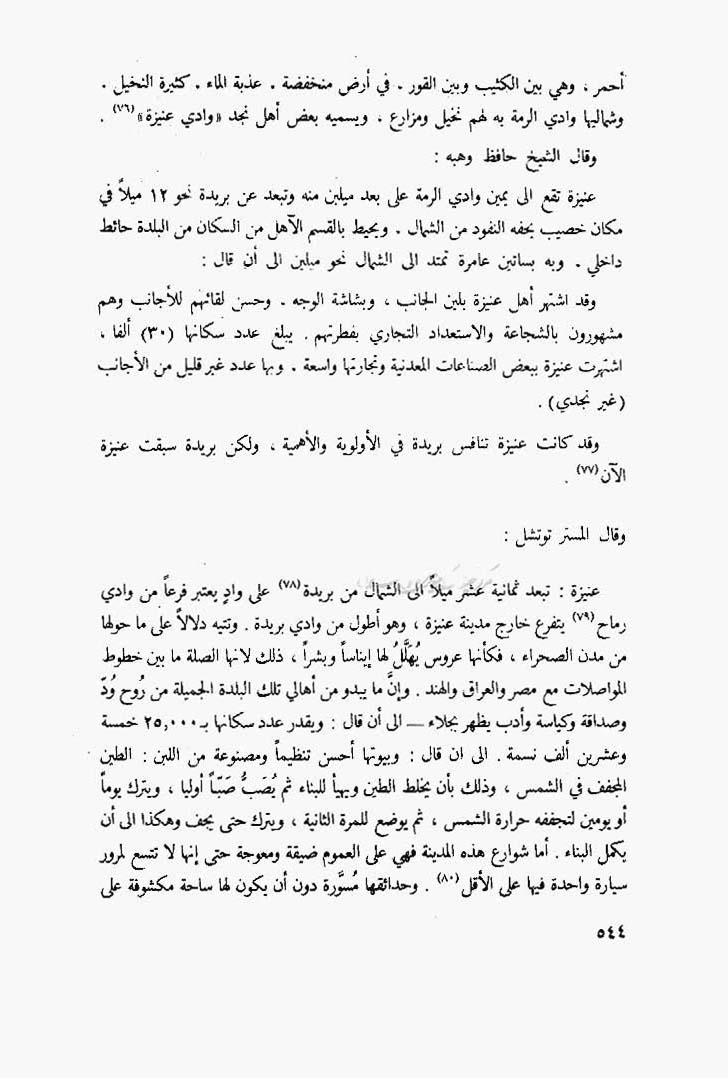 أحمر ، وهي بين الكثيب وبين القور . في أرض منخفضة . عذبة الماء . كثيرة النخيل .
وشماليها وادي الرمة به لهم نخيل ومزارع ، ويسميه بعض أهل نجد «وادي عنيزة»(٧٦) .
وقال الشيخ حافظ وهبه :
عنيزة تقع الى يمين وادي الرمة على بعد ميلين منه وتبعد عن بريدة نحو ١٢ ميلاً في
مكان خصيب يحفه النفود من الشمال . ويحيط بالقسم الآهل من السكان من البلدة حائط
داخلي . وبه بساتين عامرة تمتد الى الشمال نحو ميلين الى أن قال :
وقد اشتهر أهل عنيزة بلين الجانب ، وبشاشة الوجه . وحسن لقائهم للأجانب وهم
مشهورون بالشجاعة والاستعداد التجاري بفطرتهم . يبلغ عدد سكانها (٣٠) ألفا ،
اشتهرت عنيزة ببعض الصناعات المعدنية وتجارتها واسعة . وبها عدد غير قليل من الأجانب
(غير نجدي) .
وقد كانت عنيزة تنافس بريدة في الأولوية والأهمية ، ولكن بريدة سبقت عنيزة
الآن(٧٧) .
وقال المستر توتشل :
عنيزة : تبعد ثمانية عشر ميلاً الى الشمال من بريدة(٧٨) على وادٍ يعتبر فرعاً من وادي
رماح(٧٩) يتفرع خارج مدينة عنيزة ، وهو أطول من وادي بريدة . وتتيه دلالاً على ما حولها
من مدن الصحراء ، فكأنها عروس يُهَلَّلُ لها إيناساً وبشراً ، ذلك لانها الصلة ما بين خطوط
المواصلات مع مصر والعراق والهند . وإنَّ ما يبدو من أهالي تلك البلدة الجميلة من رُوح وُدّ
وصداقة وكياسة وأدب يظهر بجلاء — الى أن قال : ويقدر عدد سكانها بـ ٢٥,٠٠٠ خمسة
وعشرين ألف نسمة . الى ان قال : وبيوتها أحسن تنظيماً ومصنوعة من اللبن : الطين
المجفف في الشمس ، وذلك بأن يخلط الطين ويهيأ للبناء ثم يُصَبُّ صَبّاً أوليا ، ويترك يوماً
أو يومين لتجففه حرارة الشمس ، ثم يوضع للمرة الثانية ، ويترك حتى يجف وهكذا الى أن
يكمل البناء . أما شوارع هذه المدينة فهي على العموم ضيقة ومعوجة حتى إنها لا تتسع لمرور
سيارة واحدة فيها على الأقل(٨٠) . وحدائقها مُسوَّرة دون أن يكون لها ساحة مكشوفة على
٥٤٤